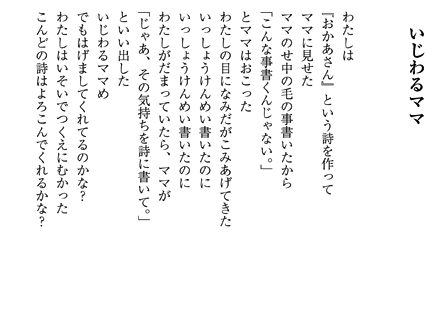 いじわるママ
わたしは
『おかあさん』という詩を作って
ママに見せた
ママのせ中の毛の事書いたから
「こんな事書くんじゃない。」
とママはおこった
わたしの目になみだがこみあげてきた
いっしょうけんめい書いたのに
いっしょうけんめい書いたのに
わたしがだまっていたら、ママが
「じゃあ、その気持ちを詩に書いて。」
といい出した
いじわるママめ
でもはげましてくれてるのかな？
わたしはいそいでつくえにむかった
こんどの詩はよろこんでくれるかな？